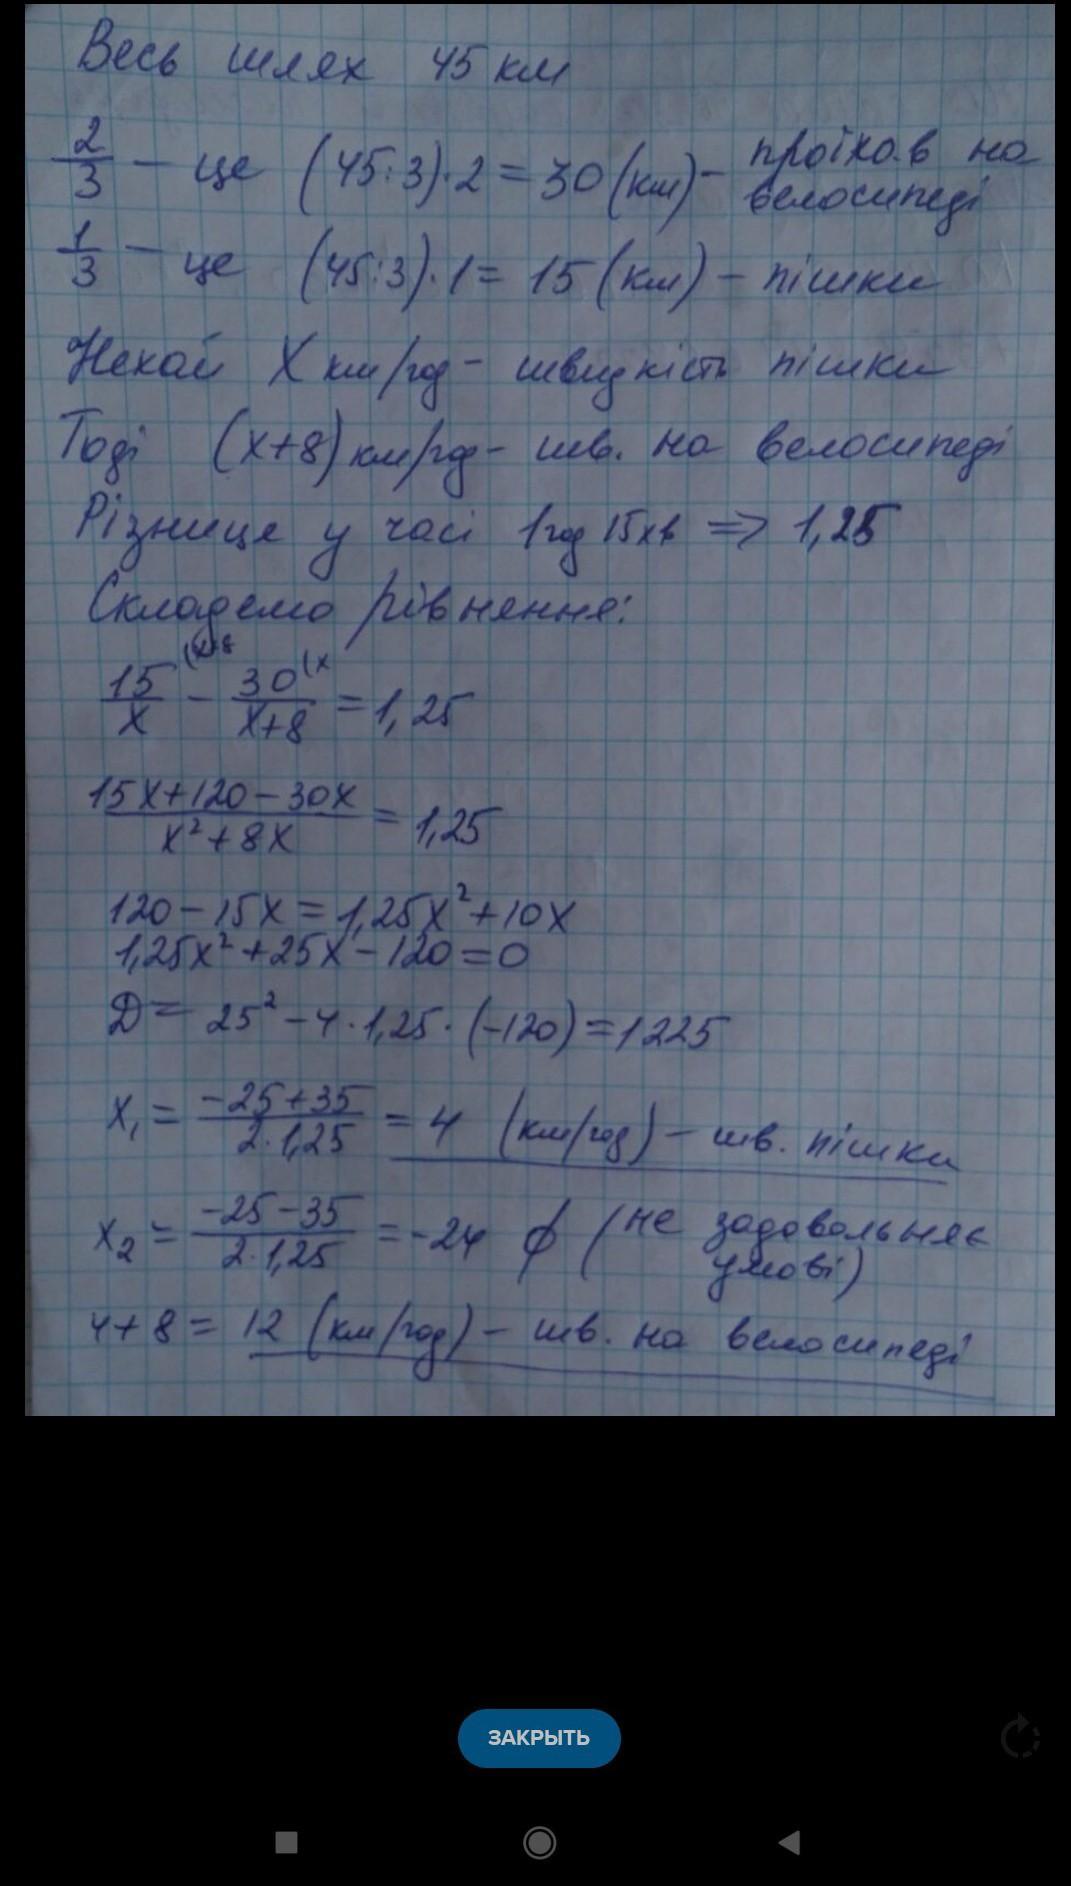 Весь шлях 45 км
2/3 — це (45:3)·2 = 30 (км) – проїхав на велосипеді
1/3 — це (45:3)·1 = 15 (км) – пішки
Нехай X км/год – швидкість пішки
Тоді (x+8) км/год – шв. на велосипеді
Різниця у часі 1 год 15 хв => 1,25
Складемо рівняння:
15/x (x+8 – 30/(x+8) (x = 1,25
(15x+120–30x)/(x²+8x) = 1,25
120–15x = 1,25x²+10x
1,25x²+25x–120=0
Д = 25²–4·1,25·(–120)=1225
x₁ = (–25+35)/(2·1,25) = 4 (км/год) – шв. пішки
x₂ = (–25–35)/(2·1,25) = –24 ∅ (не задовольняє умові)
4+8 = 12 (км/год) – шв. на велосипеді
ЗАКРЫТЬ